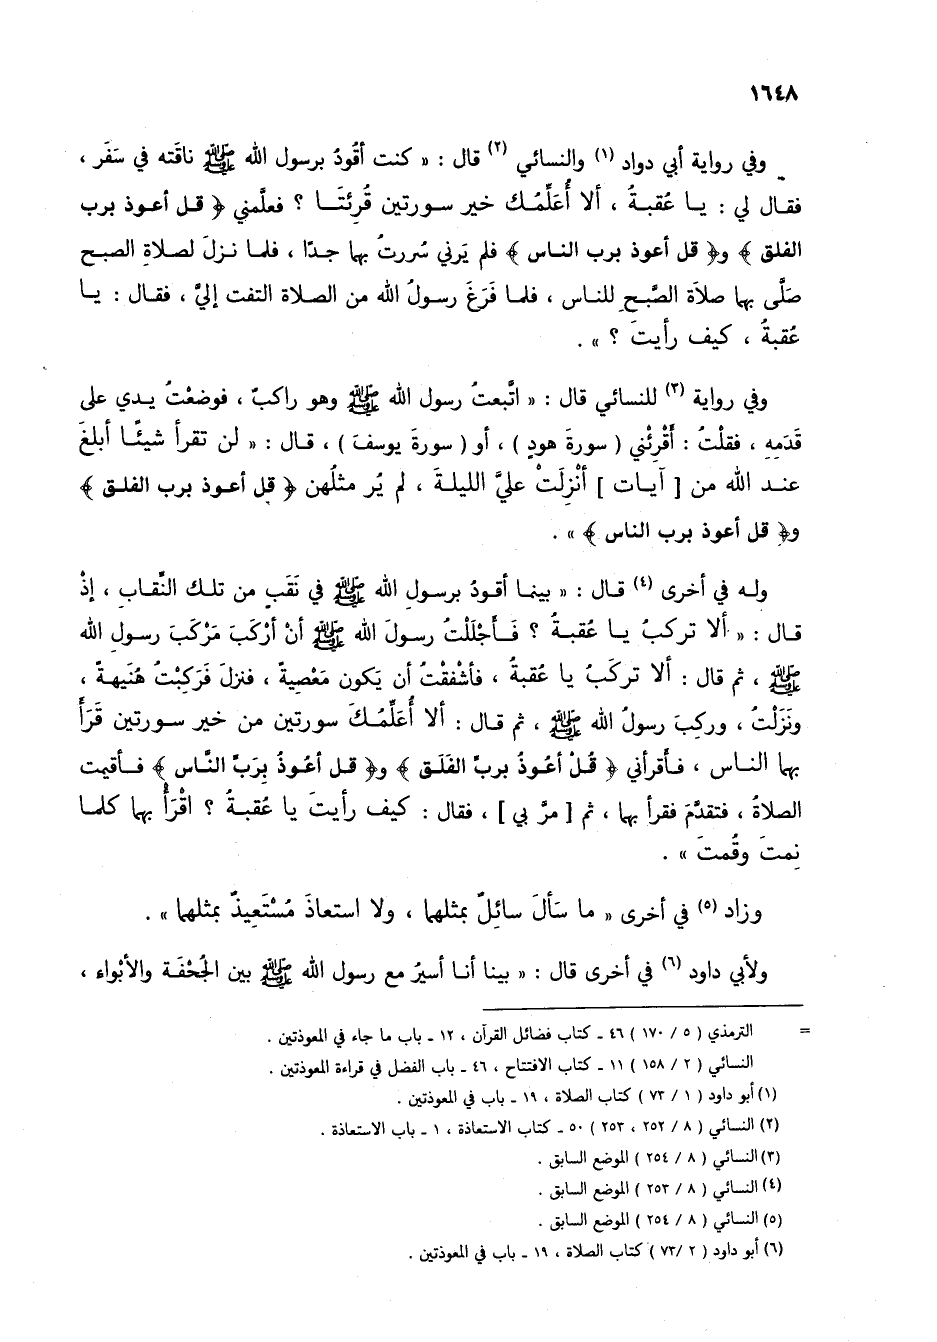 ١٦٤٨
وفي رواية أبي دواد (١) والنسائي (٢) قال : « كنت أقُودُ برسول الله ﷺ ناقَته في سَفَر ،
فقـال لي : يـا عُقبـةُ ، ألا أُعَلِّمُـك خير سـورتين قُرِئتَـا ؟ فعلَّمني ﴿ قـل أعـوذ برب
الفلق ﴾ و﴿ قل أعوذ برب النـاس ﴾ فلم يَرني سُررتُ بها جـدًا ، فلمـا نـزلَ لصلاةِ الصبـح
صَلَّى بها صلاَة الصُّبـحِ للنـاس ، فلمـا فَرَغَ رسـولُ الله من الصـلاة التفت إليَّ ، فقـال : يـا
عُقبةُ ، كيف رأيتَ ؟ » .
وفي رواية (٣) للنسائي قال : « اتَّبعتُ رسول الله ﷺ وهو راكبٌ ، فوضعْتُ يـدي على
قَدَمهِ ، فقلْتُ : أَقْرِئْني ( سورةَ هودٍ ) ، أو ( سورةَ يوسفَ ) ، قـال : « لن تقرأ شيئًـا أبلغَ
عنـد الله من [ آيـات ] أنْزِلَتْ عليَّ الليلـةَ ، لم يُر مثلُهن ﴿ قل أعـوذ برب الفلـق ﴾
و﴿ قل أعوذ برب الناس ﴾ » .
ولـه في أخرى (٤) قـال : « بينمـا أقودُ برسـول الله ﷺ في نَقَبٍ من تلـك النِّقـاب ، إذْ
قـال : « ألا تركبُ يـا عُقبـةُ ؟ فَـأجْلَلْتُ رسـولَ الله ﷺ أنْ أرْكَبَ مَرْكَبَ رسـولِ الله
ﷺ ، ثم قال : ألا تركَبُ يا عُقبةُ ، فأشْفقْتُ أن يَكون مَعْصِيةً ، فنزلَ فَرَكِبْتُ هُنَيهةً ،
ونَزَلْتُ ، وركبَ رسولُ الله ﷺ ، ثم قـال : ألا أُعَلِّمُـكَ سورتين من خير سـورتين قَرَأَ
بها النـاس ، فـأقرأني ﴿ قُلْ أعُوذُ بربِّ الفَلَـقِ ﴾ و﴿ قـل أعُوذُ برَبِّ النَّاس ﴾ فـأقيمت
الصلاةُ ، فتقدَّمَ فقرأ بها ، ثم [ مرَّ بي ] ، فقال : كيف رأيتَ يا عُقبةُ ؟ اقْرَأْ بها كلما
نِمتَ وقُمتَ » .
وزاد (٥) في أخرى « ما سَألَ سائلٌ بمثلها ، ولا استعاذَ مُسْتَعِيذٌ بمثلها » .
ولأبي داود (٦) في أخرى قال : « بينا أنـا أسيرُ مع رسول الله ﷺ بين الجُحْفَـة والأبْواء ،
= الترمذي ( ٥ / ١٧٠ ) ٤٦ ـ كتاب فضائل القرآن ، ١٢ ـ باب ما جاء في المعوذتين .
النسائي ( ٢ / ١٥٨ ) ١١ ـ كتاب الافتتاح ، ٤٦ ـ باب الفضل في قراءة المعوذتين .
(١) أبو داود ( ١ / ٧٣ ) كتاب الصلاة ، ١٩ ـ باب في المعوذتين .
(٢) النسائي ( ٨ / ٢٥٢ ، ٢٥٣ ) ٥٠ ـ كتاب الاستعاذة ، ١ ـ باب الاستعاذة .
(٣) النسائي ( ٨ / ٢٥٤ ) الموضع السابق .
(٤) النسائي ( ٨ / ٢٥٣ ) الموضع السابق .
(٥) النسائي ( ٨ / ٢٥٤ ) الموضع السابق .
(٦) أبو داود ( ٢ /٧٣ ) كتاب الصلاة ، ١٩ ـ باب في المعوذتين .